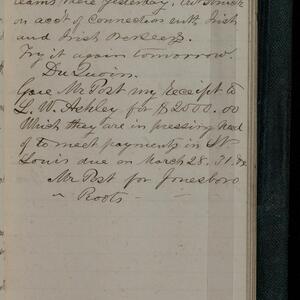 teams there yesterday, but struck
on acct of connection with Irish
and Irish Overseers.
Try it again tomorrow.
Du Quoin.
Gave Mr Post my Receipt to
L. W. Ashley for $2000.00
Which they are in pressing need
of to meet payments in St
Louis due on March 28. 31. &c
Mr Post for Jonesboro
" Roots